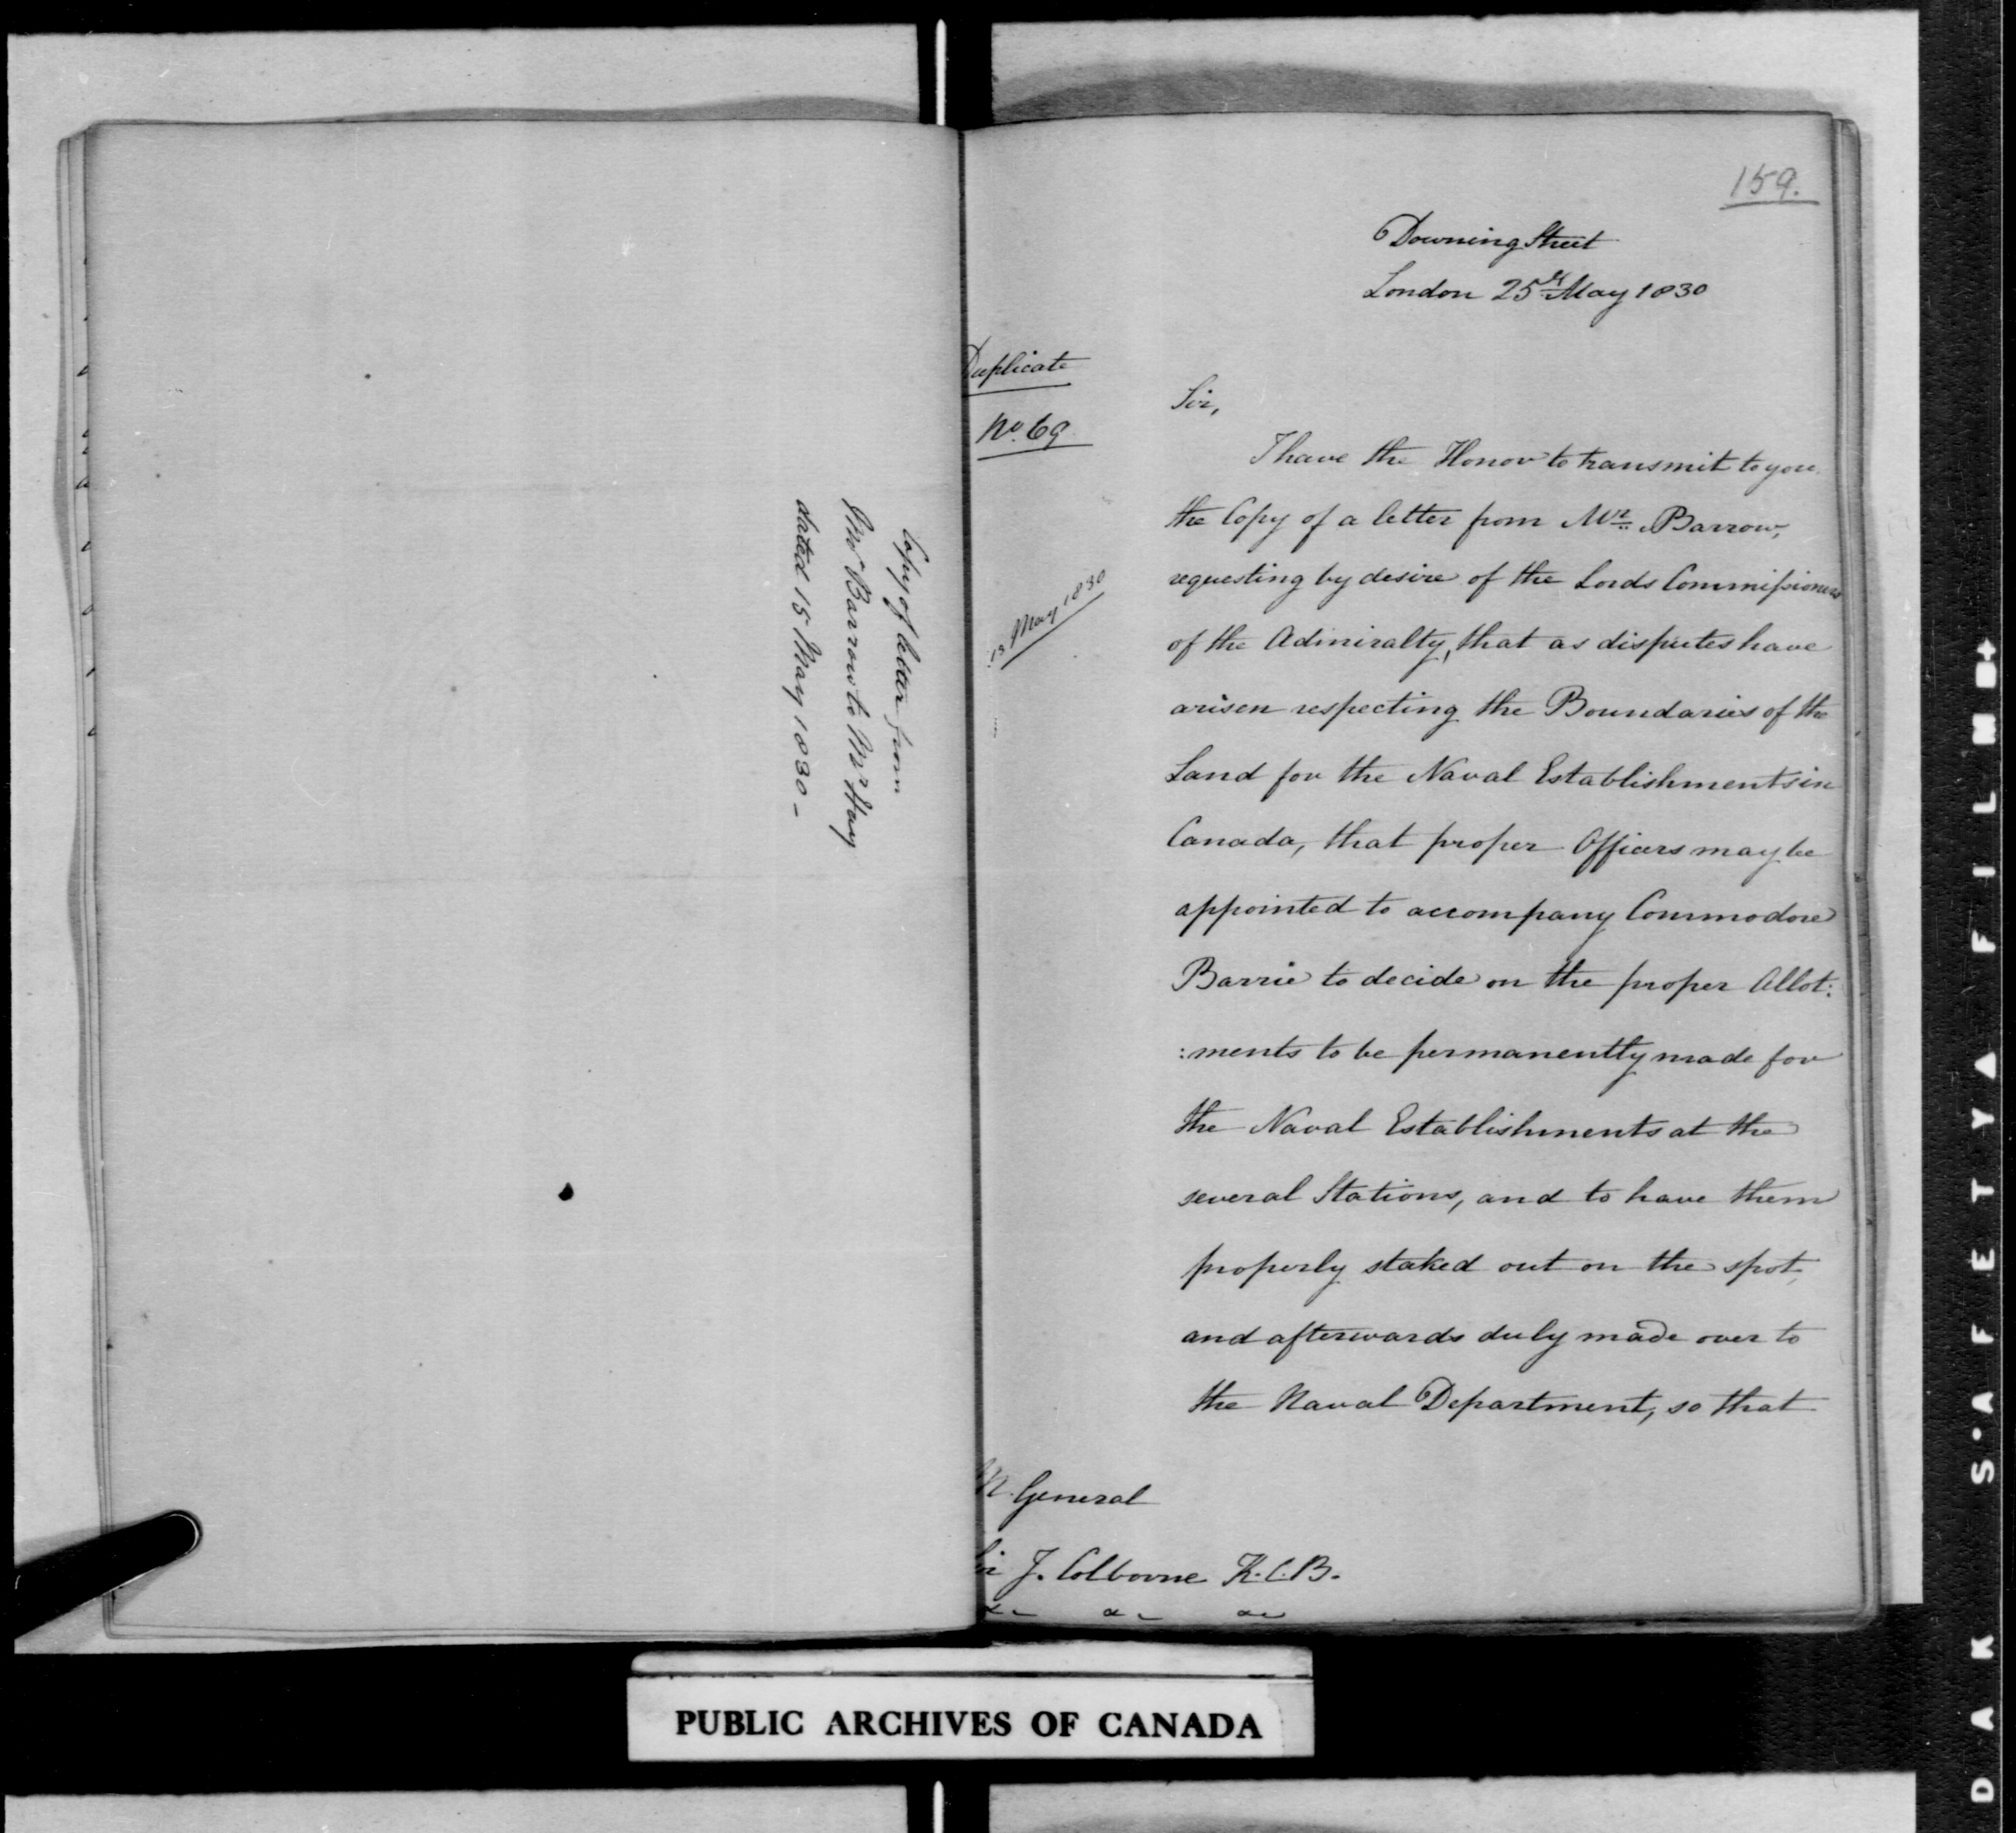 Copy of letter from
Mr Barrow to Mr Hay
dated 15 May 1830 -
159.
Downing Street
London 25th May 1830
Duplicate
No. 69
Sir,
I have the Honor to transmit to you
the Copy of a letter from Mr. Barrow,
requesting by desire of the Lords Commissioners
15 May 1830
of the Admiralty, that as disputes have
arisen respecting the Boundaries of the
Land for the Naval Establishments in
Canada, that proper Officers may be
appointed to accompany Commodore
Barrie to decide on the proper Allot:
:ments to be permanently made for
the Naval Establishments at the
several Stations, and to have them
properly staked out on the spot,
and afterwards duly made over to
the Naval Department, so that
General
Sir J. Colborne K.C.B.
PUBLIC ARCHIVES OF CANADA
DAK S'AFETY A FILM